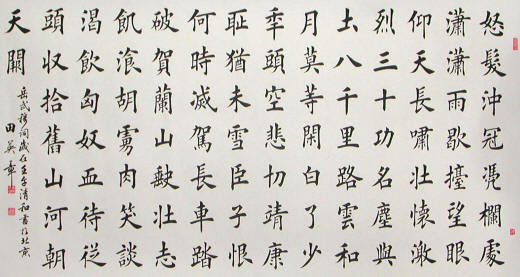 怒髮沖冠凴欄處
瀟瀟雨歇擡望眼
仰天長嘯壯懷激
烈三十功名塵與
土八千里路雲和
月莫等閑白了少
秊頭空悲切靖康
恥猶未雪臣子恨
何時滅駕長車踏
破賀蘭山缺壯志
飢湌胡虜肉笑談
渴飲匈奴血待從
頭收拾舊山河朝
天闕
岳武穆詞歲在壬午清和書於北京
田英章